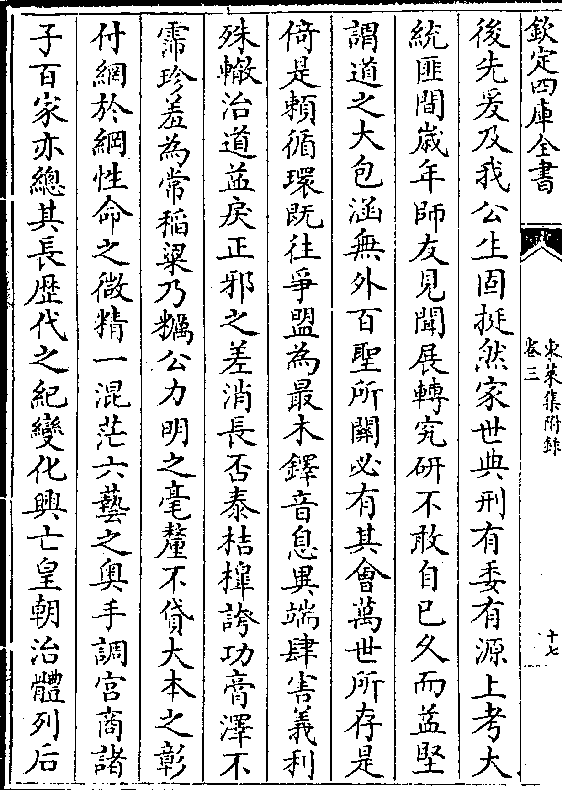 欽定四庫全書
東萊集附錄
卷三
十七
後先爰及我公生固挺然家世典刑有委有源上考大
統匪間歳年師友見聞展轉究研不敢自已久而益堅
謂道之大包涵無外百聖所關必有其會萬世所存是
倚是頼循環既往爭盟為最木鐸音息異端肆害義利
殊轍治道益戾正邪之差消長否泰桔槹誇功膏澤不
霈珍羞為常稻粱乃糲公力明之毫釐不貸大本之彰
付網於綱性命之微精一混茫六藝之奥手調宫商諸
子百家亦總其長歴代之紀變化興亡皇朝治體列后